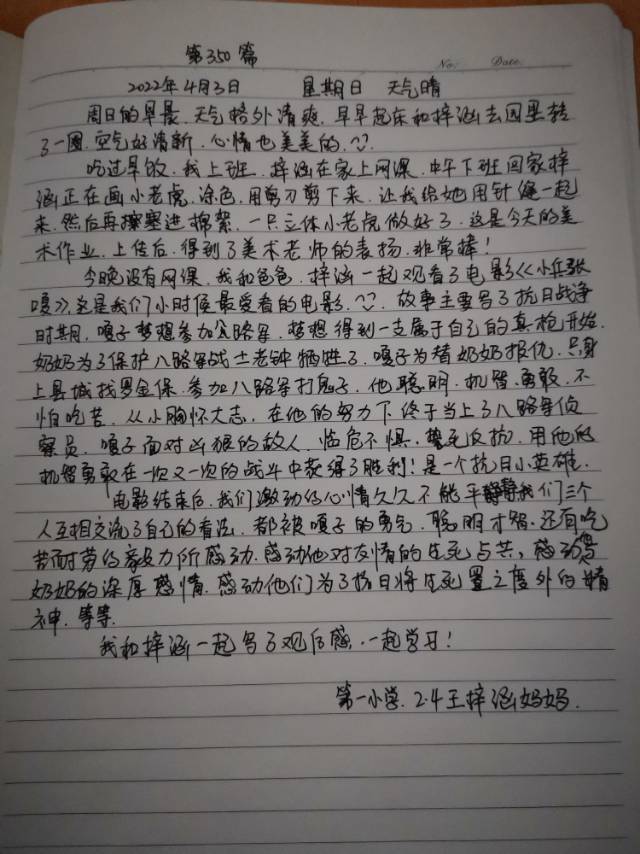 第350篇
No. Date.
2022年4月3日 星期日 天气晴
周日的早晨.天气格外清爽.早早起床和梓涵去园里转
了一圈.空气好清新.心情也美美的.
吃过早饭.我上班.梓涵在家上网课.中午下班回家梓
涵正在画小老虎.涂色.用剪刀剪下来.让我给她用针缝一起
来.然后再撺塞进棉絮.一只立体小老虎做好了.这是今天的美
术作业.上传后.得到了美术老师的表扬.非常棒!
今晚没有网课.我和爸爸.梓涵一起观看了电影《小兵张
嘎》.这是我们小时候最爱看的电影.故事主要写了抗日战争
时期.嘎子梦想参加八路军.梦想得到一支属于自己的真枪开始.
奶奶为了保护八路军战士老钟牺牲了.嘎子为替奶奶报仇.只身
上县城找罗金保.参加八路军打鬼子.他聪明.机智.勇敢.不
怕吃苦.从小胸怀大志.在他的努力下终于当上了八路军侦
察员.嘎子面对凶狠的敌人.临危不惧.誓死反抗.用他的
机智勇敢在一次又一次的战斗中获得了胜利!是一个抗日小英雄.
电影结束后.我们激动的心情久久不能平静我们三个
人互相交流了自己的看法.都被嘎子的勇气.聪明才智.还有吃
苦而耐劳的毅力所感动.感动他对友情的生死与共.感动
奶奶的深厚感情.感动他们为了抗日将生死置之度外的精
神.等等.
我和梓涵一起写了观后感.一起学习!
第一小学.2.4王梓涵妈妈.